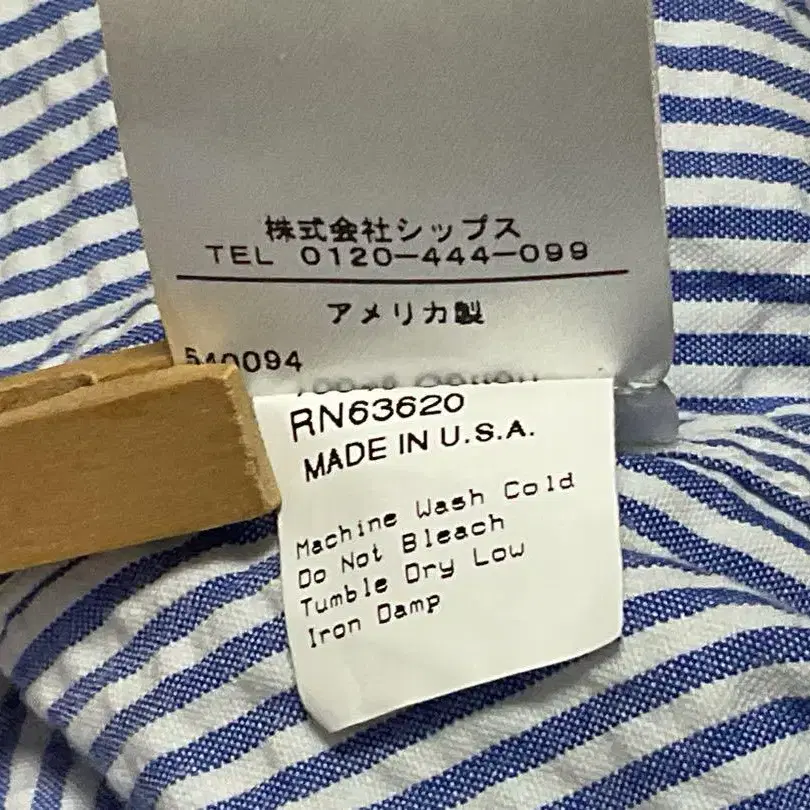 株式会社シップス
TEL 0120-444-099
アメリカ製
540094
RN63620
MADE IN U.S.A.
Machine Wash Cold
Do Not Bleach
Tumble Dry Low
Iron Damp